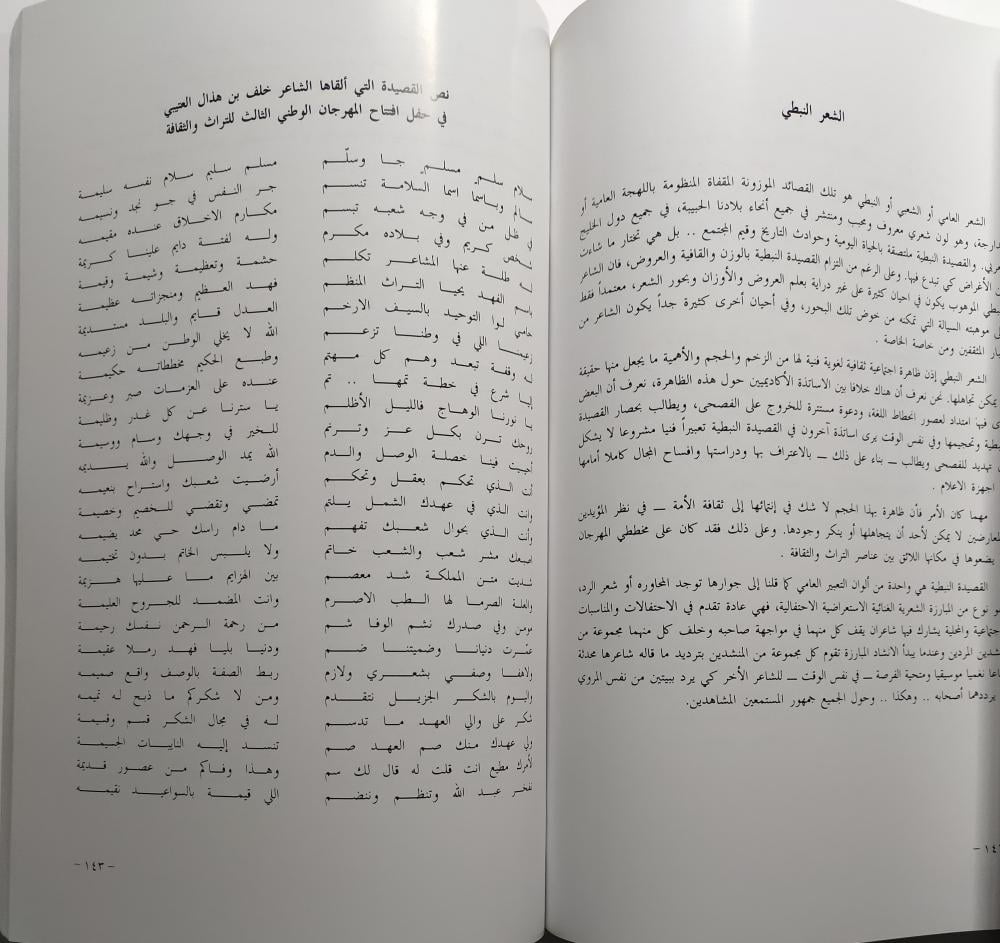 الشعر النبطي
الشعر العامي أو الشعبي أو النبطي هو تلك القصائد الموزونة المقفاة المنظومة باللهجة العامية أو
الدارجة، وهو لون شعري معروف ومحبب ومنتشر في جميع أنحاء بلادنا الحبيبة، في جميع دول الخليج
العربي. والقصيدة النبطية ملتصقة بالحياة اليومية وحوادث التاريخ وقيم المجتمع .. بل هي تختار ما شاءت
من الأغراض كي تبدع فيها. وعلى الرغم من التزام القصيدة النبطية بالوزن والقافية والعروض، فان الشاعر
النبطي الموهوب يكون في احيان كثيرة على غير دراية بعلم العروض والأوزان وبحور الشعر، معتمداً فقط
على موهبته السيالة التي تمكنه من خوض تلك البحور، وفي أحيان أخرى كثيرة جداً يكون الشاعر من
كبار المثقفين ومن خاصة الخاصة .
الشعر النبطي إذن ظاهرة اجتماعية ثقافية لغوية فنية لها من الزخم والحجم والأهمية ما يجعل منها حقيقة
يمكن تجاهلها. نحن نعرف أن هناك خلافا بين الاساتذة الأكاديميين حول هذه الظاهرة، نعرف أن البعض
فيها امتداد لعصور انحطاط اللغة، ودعوة مستترة للخروج على الفصحى، ويطالب بحصار القصيدة
النبطية وتحجيمها وفي نفس الوقت يرى اساتذة آخرون في القصيدة النبطية تعبيراً فنيا مشروعا لا يشكل
تهديد للفصحى ويطالب ــ بناء على ذلك ــ بالاعتراف بها ودراستها وافساح المجال كاملا أمامها
اجهزة الاعلام .
مهما كان الأمر فأن ظاهرة بهذا الحجم لا شك في إنتمائها إلى ثقافة الأمة ــ في نظر المؤيدين
والمعارضين لا يمكن لأحد أن يتجاهلها أو ينكر وجودها. وعلى ذلك فقد كان على مخططي المهرجان
يضعوها في مكانها اللائق بين عناصر التراث والثقافة .
القصيدة النبطية هي واحدة من ألوان التعبير العامي كما قلنا إلى جوارها توجد المحاوره أو شعر الرد،
نوع من المبارزة الشعرية الغنائية الاستعراضية الاحتفالية، فهي عادة تقدم في الاحتفالات والمناسبات
الاجتماعية والمحلية يشارك فيها شاعران يقف كل منهما في مواجهة صاحبه وخلف كل منهما مجموعة من
المنشدين المردين وعندما يبدأ الانشاد المبارزة تقوم كل مجموعة من المنشدين بترديد ما قاله شاعرها محدثة
نغميا موسيقيا ومتحية الفرصة ــ في نفس الوقت ــ للشاعر الأخر كي يرد ببيتين من نفس المروي
يرددهما أصحابه .. وهكذا .. وحول الجميع جمهور المستمعين المشاهدين.
نص القصيدة التي ألقاها الشاعر خلف بن هذال العتيبي
في حفل افتتاح المهرجان الوطني الثالث للتراث والثقافة
سلام سلم مسلم جا وسلّم مسلم سليم سلام نفسه سليمة
سالم وباسما اسما السلامة تنسم جر النفس في جو نجد ونسيمه
في ظل من في وجه شعبه تبسم مكارم الاخلاق عنده مقيمه
شخص كريم وفي بلاده مكرم وله لفتة دايم علينا كريمة
له طلة عنها المشاعر تكلم حشمة وتعظيمة وشيمة وقيمة
باسم الفهد يحيا التراث المنظم فهد العظيم ومنجزاته عظيمة
حامي لوا التوحيد بالسيف الارخم العدل قايم والبلد مستديمة
زعيمنا اللي في وطننا تزعم الله لا يخلي الوطن من زعيمه
له وقفة تبعد وهم كل مهتم وطبع الحكيم مخططاته حكيمة
إيا شرع في خطة تمها .. تم عنده على العزمات صبر وعزيمة
يا نورنا الوهاج فالليل الأظلم يا سترنا عن كل غدر وظليمة
روحك ترن بكل عز وترنم للخير في وجهك وسام ووسيمة
أحييت فينا خصلة الوصل والدم الله يمد الوصل والله يديمه
أنت الذي تحكم بعقل وتحكم أرضيت شعبك واستراح بنعيمه
وانت الذي في عهدك الشمل يلتم تمضي وتقضي للخصيم وخصيمة
وأنت الذي بحوال شعبك تفهم ما دام راسك حي محد يضيمه
اصبعك مشر شعب والشعب خاتم ولا يلبس الخاتم بدون تختيمه
شديت متن المملكة شد معصم بين الهزايم ما عليها هزيمة
والعلة الصرما لها الطب الاصرم وانت المضمد للجروح العليمة
مومن وفي صدرك نشم الوفا شم من رحمة الرحمن نفسك رحيمة
عمّرت دنيانا وضميتنا ضم ودنيا بليا فهد رملا عقيمة
ولافقا وصفي بشعري ولازم ربط الصفة بالوصف واقع صميمه
واليوم بالشكر الجزيل نتقدم ومن لا شكركم ما ذبح له تميمه
شكر على والي العهد ما تدسم له في مجال الشكر قسم وقسيمة
ولي عهدك منك صم العهد صم تنسد إليه النايبات الجسيمة
لأمرك مطيع انت قلت له قال لك سم وهذا وفاكم من عصور قديمة
نفخر عبد الله وتنظم وننضم اللي قيمة بالسواعيد نقيمه
- ١٤٣ -